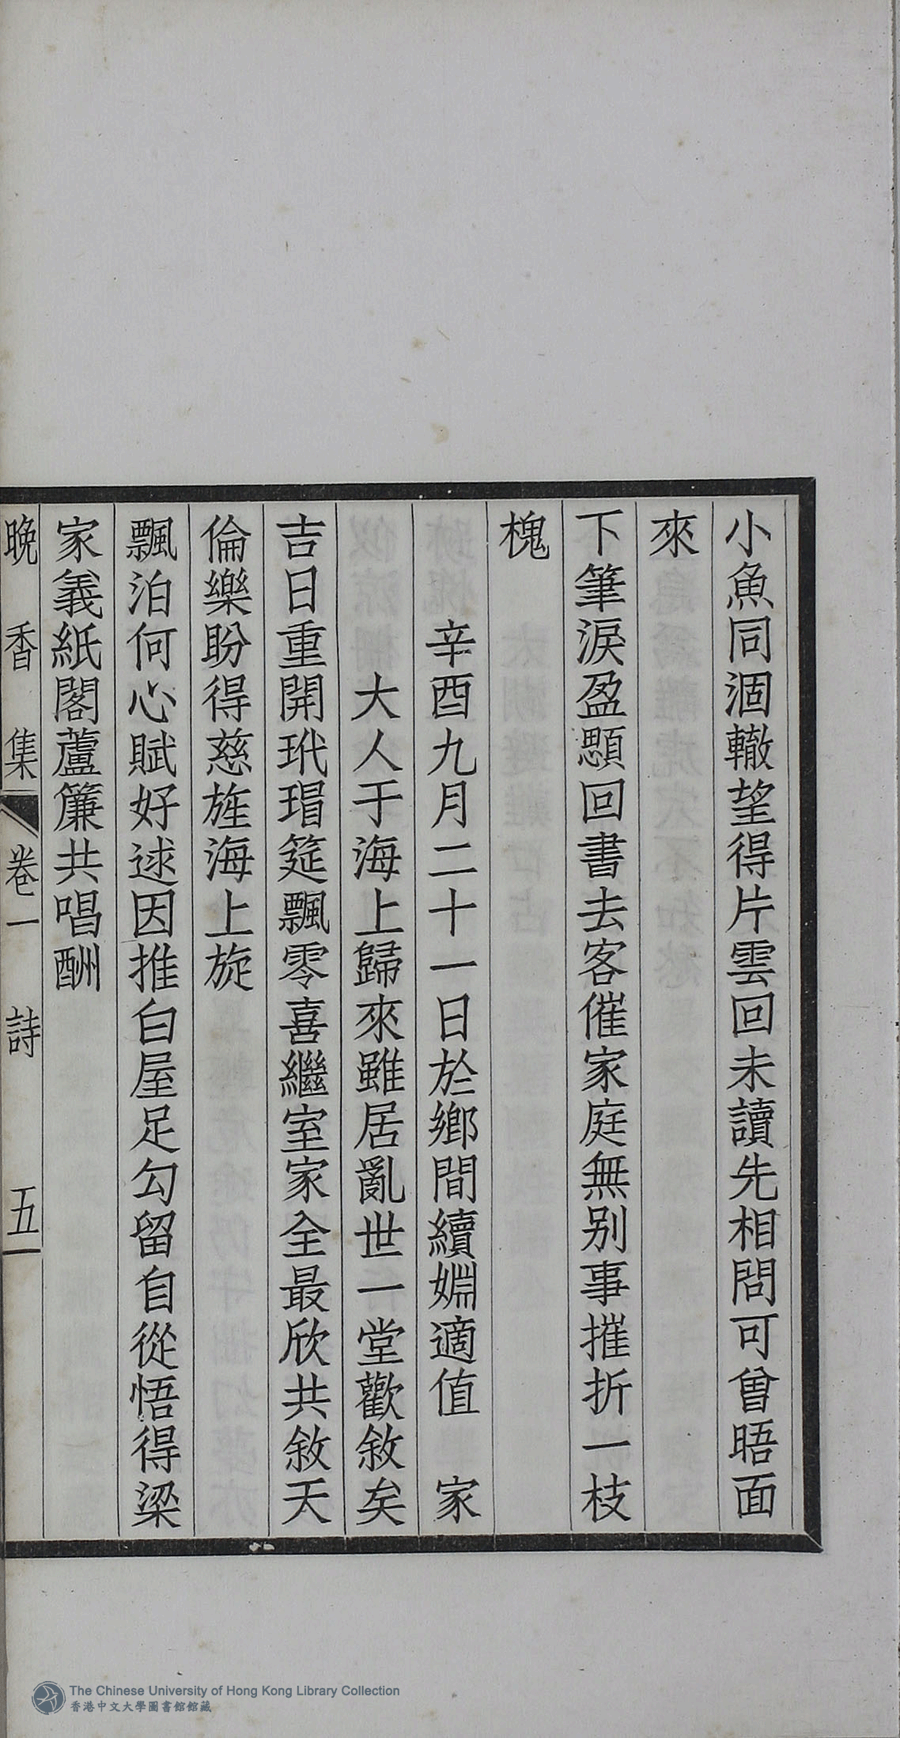 小魚同涸轍望得片雲回未讀先相問可曾晤面
來
下筆淚盈顋回書去客催家庭無别事摧折一枝
槐
辛酉九月二十一日於鄉間續婣適值　家
大人于海上歸來雖居亂世一堂歡敘矣
吉日重開玳瑁筵飄零喜繼室家全最欣共敘天
倫樂盼得慈旌海上旋
飄泊何心賦好逑因推白屋足勾留自從悟得梁
家義紙閣蘆簾共唱酬
晚香集　卷一　詩　五
The Chinese University of Hong Kong Library Collection
香港中文大學圖書館館藏